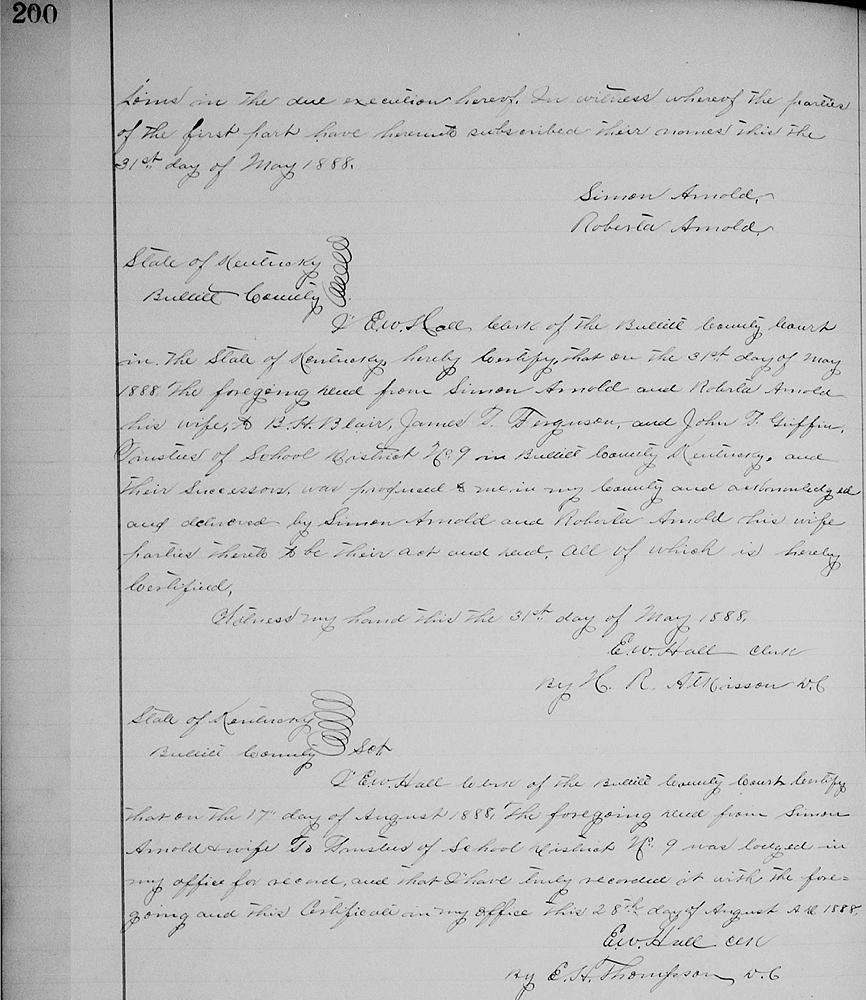 200
in the due execution hereof. In witness whereof the parties
of the first part have hereunto subscribed their names this the
31st day of May 1888.
Simon Arnold,
Roberta Arnold,
State of Kentucky
Bullitt County
I E.W. Hall Clerk of the Bullitt County Court
in the State of Kentucky hereby Certify, that on the 31st day of May
1888. The foregoing deed from Simon Arnold and Roberta Arnold
his wife, to B.H. Blair, James T. Ferguson, and John T. Griffin,
Trustees of School District No. 9 in Bullitt County Kentucky, and
their Successors, was produced to me in my County and acknowledged
and delivered by Simon Arnold and Roberta Arnold his wife
parties thereto to be their act and deed, all of which is hereby
Certified,
Witness my hand this the 31st day of May 1888,
E.W. Hall Clerk
By H. R. Atkisson D.C
State of Kentucky
Bullitt County Sct
I E.W. Hall Clerk of the Bullitt County Court Certify
that on the 17" day of August 1888, The foregoing deed from Simon
Arnold & wife To Trustees of School District No. 9 was lodged in
my office for record, and that I have truly recorded it with the fore=
going and this Certificate in my office this 28th day of August AD 1888
E.W. Hall Clk
By E.H. Thompson, D.C